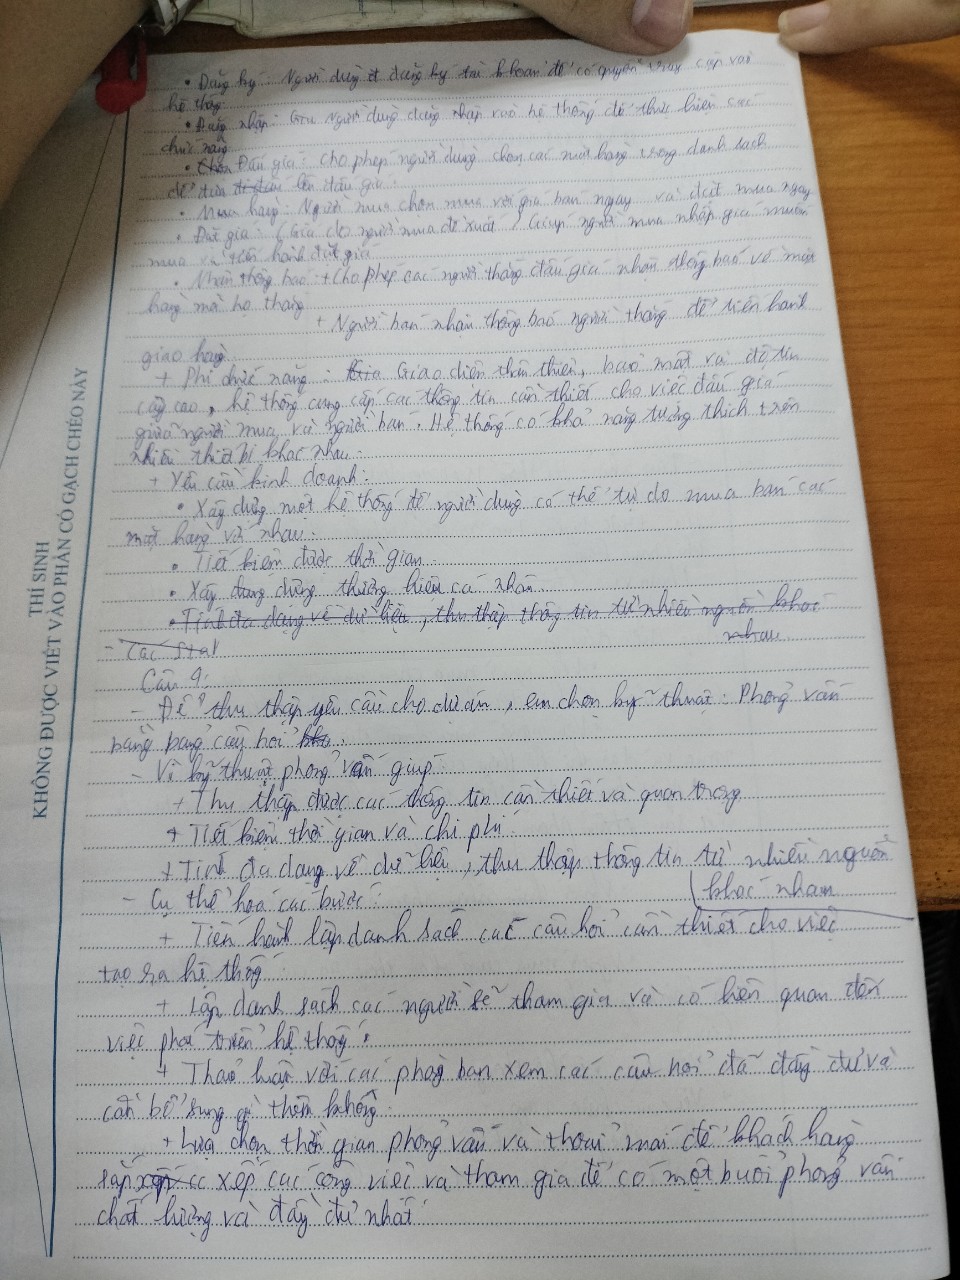 • Đăng ký: Người dùng đăng ký tài khoản để có quyền truy cập vào
hệ thống
• Đăng nhập: Giúp Người dùng đăng nhập vào hệ thống để thực hiện các
chức năng
• Chọn Đấu giá: Cho phép người dùng chọn các mặt hàng trong danh sách
để đưa lên đấu giá.
• Mua hàng: Người mua chọn mua với giá bán ngay và đặt mua ngay
• Đặt giá: (Giá do người mua đề xuất) Giúp người mua nhập giá muốn
mua và tiến hành đặt giá
• Nhận thông báo: + Cho phép các người thắng đấu giá nhận thông báo về mặt
hàng mà họ thắng
+ Người bán nhận thông báo người thắng để tiến hành
giao hàng
+ Phi chức năng: Giao diện thân thiện, bảo mật và độ tin
cậy cao, hệ thống cung cấp các thông tin cần thiết cho việc đấu giá
giữa người mua và người bán. Hệ thống có khả năng tương thích trên
nhiều thiết bị khác nhau.
+ Yêu cầu kinh doanh:
• Xây dựng một hệ thống để người dùng có thể tự do mua bán các
mặt hàng với nhau.
• Tiết kiệm được thời gian
• Xây dựng dựng thương hiệu cá nhân.
• Tính đa dạng về dữ liệu, thu thập thông tin từ nhiều nguồn khác
nhau.
- Các stak
Câu 9:
- Để thu thập yêu cầu cho dự án, em chọn kỹ thuật: Phỏng vấn
bằng bảng câu hỏi.
- Vì kỹ thuật phỏng vấn giúp:
+ Thu thập được các thông tin cần thiết và quan trọng
+ Tiết kiệm thời gian và chi phí.
+ Tính đa dạng về dữ liệu, thu thập thông tin từ nhiều nguồn
khác nhau
- Cụ thể hóa các bước:
+ Tiến hành lập danh sách các câu hỏi cần thiết cho việc
tạo ra hệ thống
+ Lập danh sách các người sẽ tham gia và có liên quan đến
việc phát triển hệ thống.
+ Thảo luận với các phòng ban xem các câu hỏi đã đầy đủ và
cần bổ sung gì thêm không.
+ Lựa chọn thời gian phỏng vấn và thoải mái để khách hàng
sắp xếp các công việc và tham gia để có một buổi phỏng vấn
chất lượng và đầy đủ nhất
THÍ SINH
KHÔNG ĐƯỢC VIẾT VÀO PHẦN CÓ GẠCH CHÉO NÀY